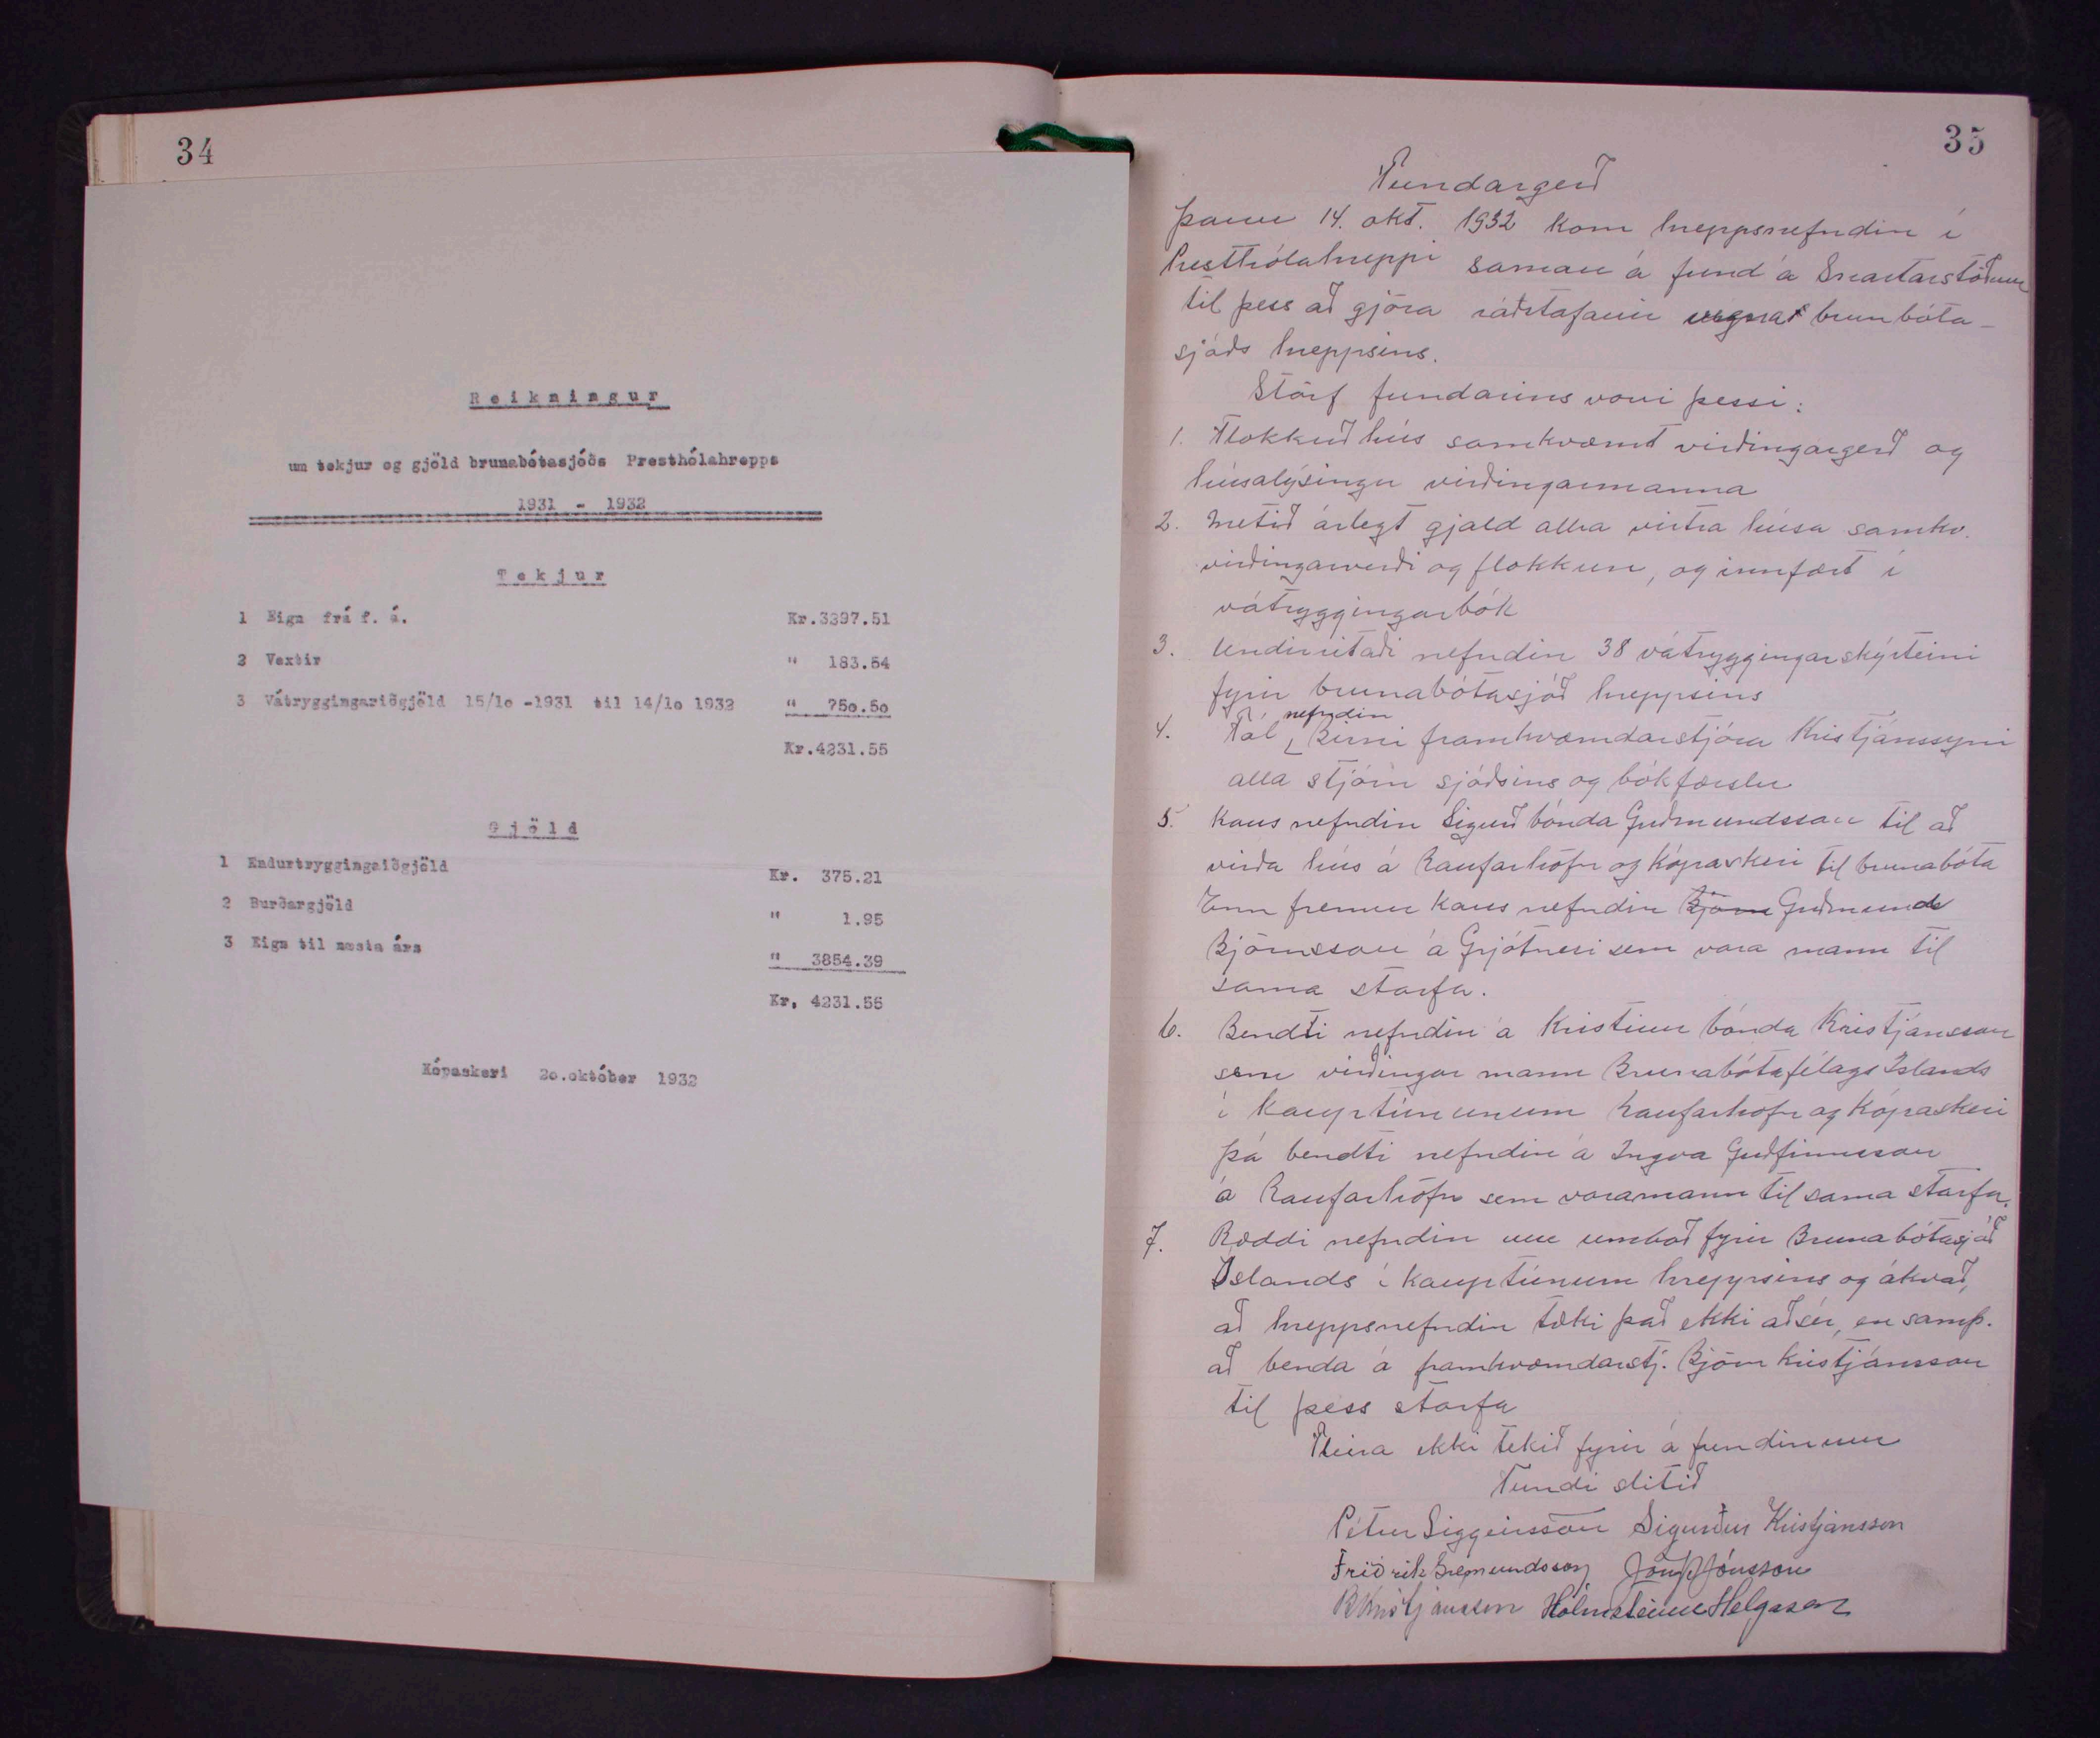 34
Reikningur
um tekjur og gjöld brunabótasjóðs Presthólahrepps
1931 - 1932
Tekjur
1 Eign frá f. á. Kr.3297.51
2 Vextir " 183.54
3 Vátryggingariðgjöld 15/10 -1931 til 14/10 1932 " 750.50
Kr.4231.55
Gjöld
1 Endurtryggingaiðgjöld Kr. 375.21
2 Burðargjöld " 1.95
3 Eign til næsta árs " 3854.39
Kr. 4231.55
Kópaskeri 20.október 1932
35
Fundargerð
Þann 14. okt. 1932 kom hreppsnefndin í
Presthólahreppi saman á fund á Snartarstöðum
til þess að gjöra ráðstafanir vegna brunbóta-
sjóðs hreppsins.
Störf fundarins voru þessi:
1. Flokkuð hús samkvæmt virðingargerð og
húsalýsingu virðingarmanna
2. Metið árlegt gjald allra virtra húsa samkv.
virðingarverði og flokkun, og innfært í
vátryggingarbók
3. Undirritaði nefndin 38 vátryggingarskýrteini
fyrir brunabótasjóð hreppsins
4. Fól nefndin Birni framkvæmdarstjóra Kristjánssyni
alla stjórn sjóðsins og bókfærslu
5. Kaus nefndin Sigurð bónda Guðmundsson til að
virða hús á Raufarhöfn og Kópaskeri til brunabóta
Enn fremur kaus nefndin Björn Guðmund
Björnsson á Grjótnesi sem vara mann til
sama starfa.
6. Bendti nefndin á Kristinn bónda Kristjánsson
sem virðingar mann Brunabótafélags Íslands
í kauptúnunum Raufarhöfn og Kópaskeri
Þá bendti nefndin á Ingva Guðfinnsson
á Raufarhöfn sem varamann til sama starfa.
7. Ræddi nefndin um umboð fyrir Brunabótasjóð
Íslands í kauptúnum hreppsins og ákvað,
að hreppsnefndin tæki það ekki að sér, en samþ.
að benda á framkvæmdarstj. Björn Kristjánsson
til þess starfa
Fleira ekki tekið fyrir á fundinum
Fundi slitið
Pétur Siggeirsson Sigurður Kristjánsson
Friðrik Sæmundsson Jón P Jónsson
B Kristjánsson Hólmsteinn Helgason